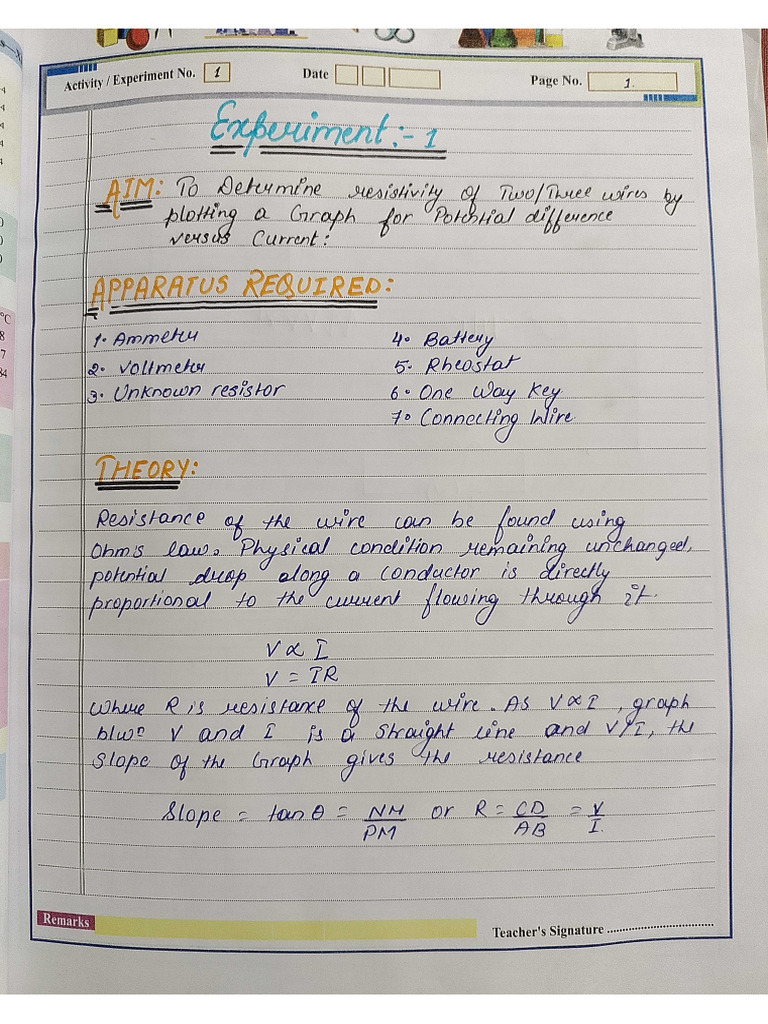 Activity / Experiment No. 1 Date Page No. 1.
Experiment:- 1
AIM: To Determine resistivity of Two/Three wires by
plotting a Graph for Potential difference
versus Current:
APPARATUS REQUIRED:
1. Ammeter
2. Voltmeter
3. Unknown resistor
4. Battery
5. Rheostat
6. One Way Key
7. Connecting Wire
THEORY:
Resistance of the wire can be found using
Ohms law. Physical condition remaining unchanged,
potential drop along a conductor is directly
proportional to the current flowing through it.
V ∝ I
V = IR
Where R is resistance of the wire. As V∝I, graph
b/wn V and I is a straight line and V/I, the
Slope of the Graph gives the resistance
Slope = tan θ = NM/PM or R = CD/AB = V/I.
Remarks
Teacher's Signature ..............................
°C
8
7
34